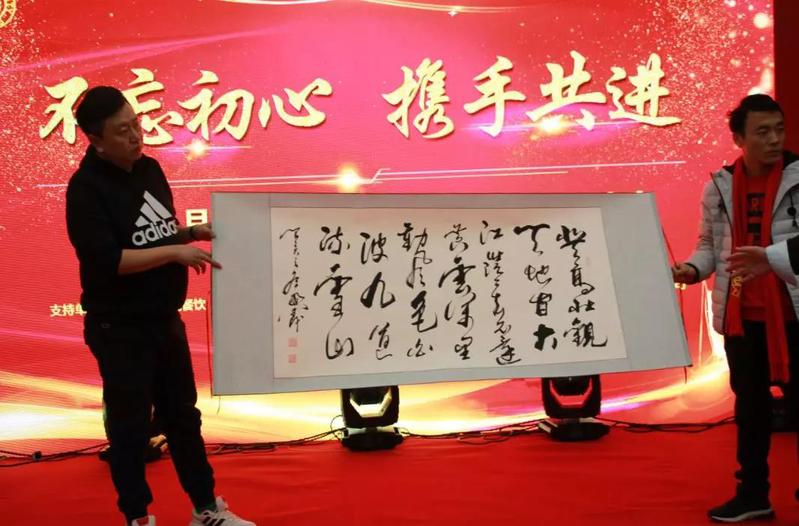 不忘初心 携手共进
支持单
餐饮
adidas
登高壮觀
天地间大
江茫茫去不還
黄雲萬里
動風色白
波九道
流雪山